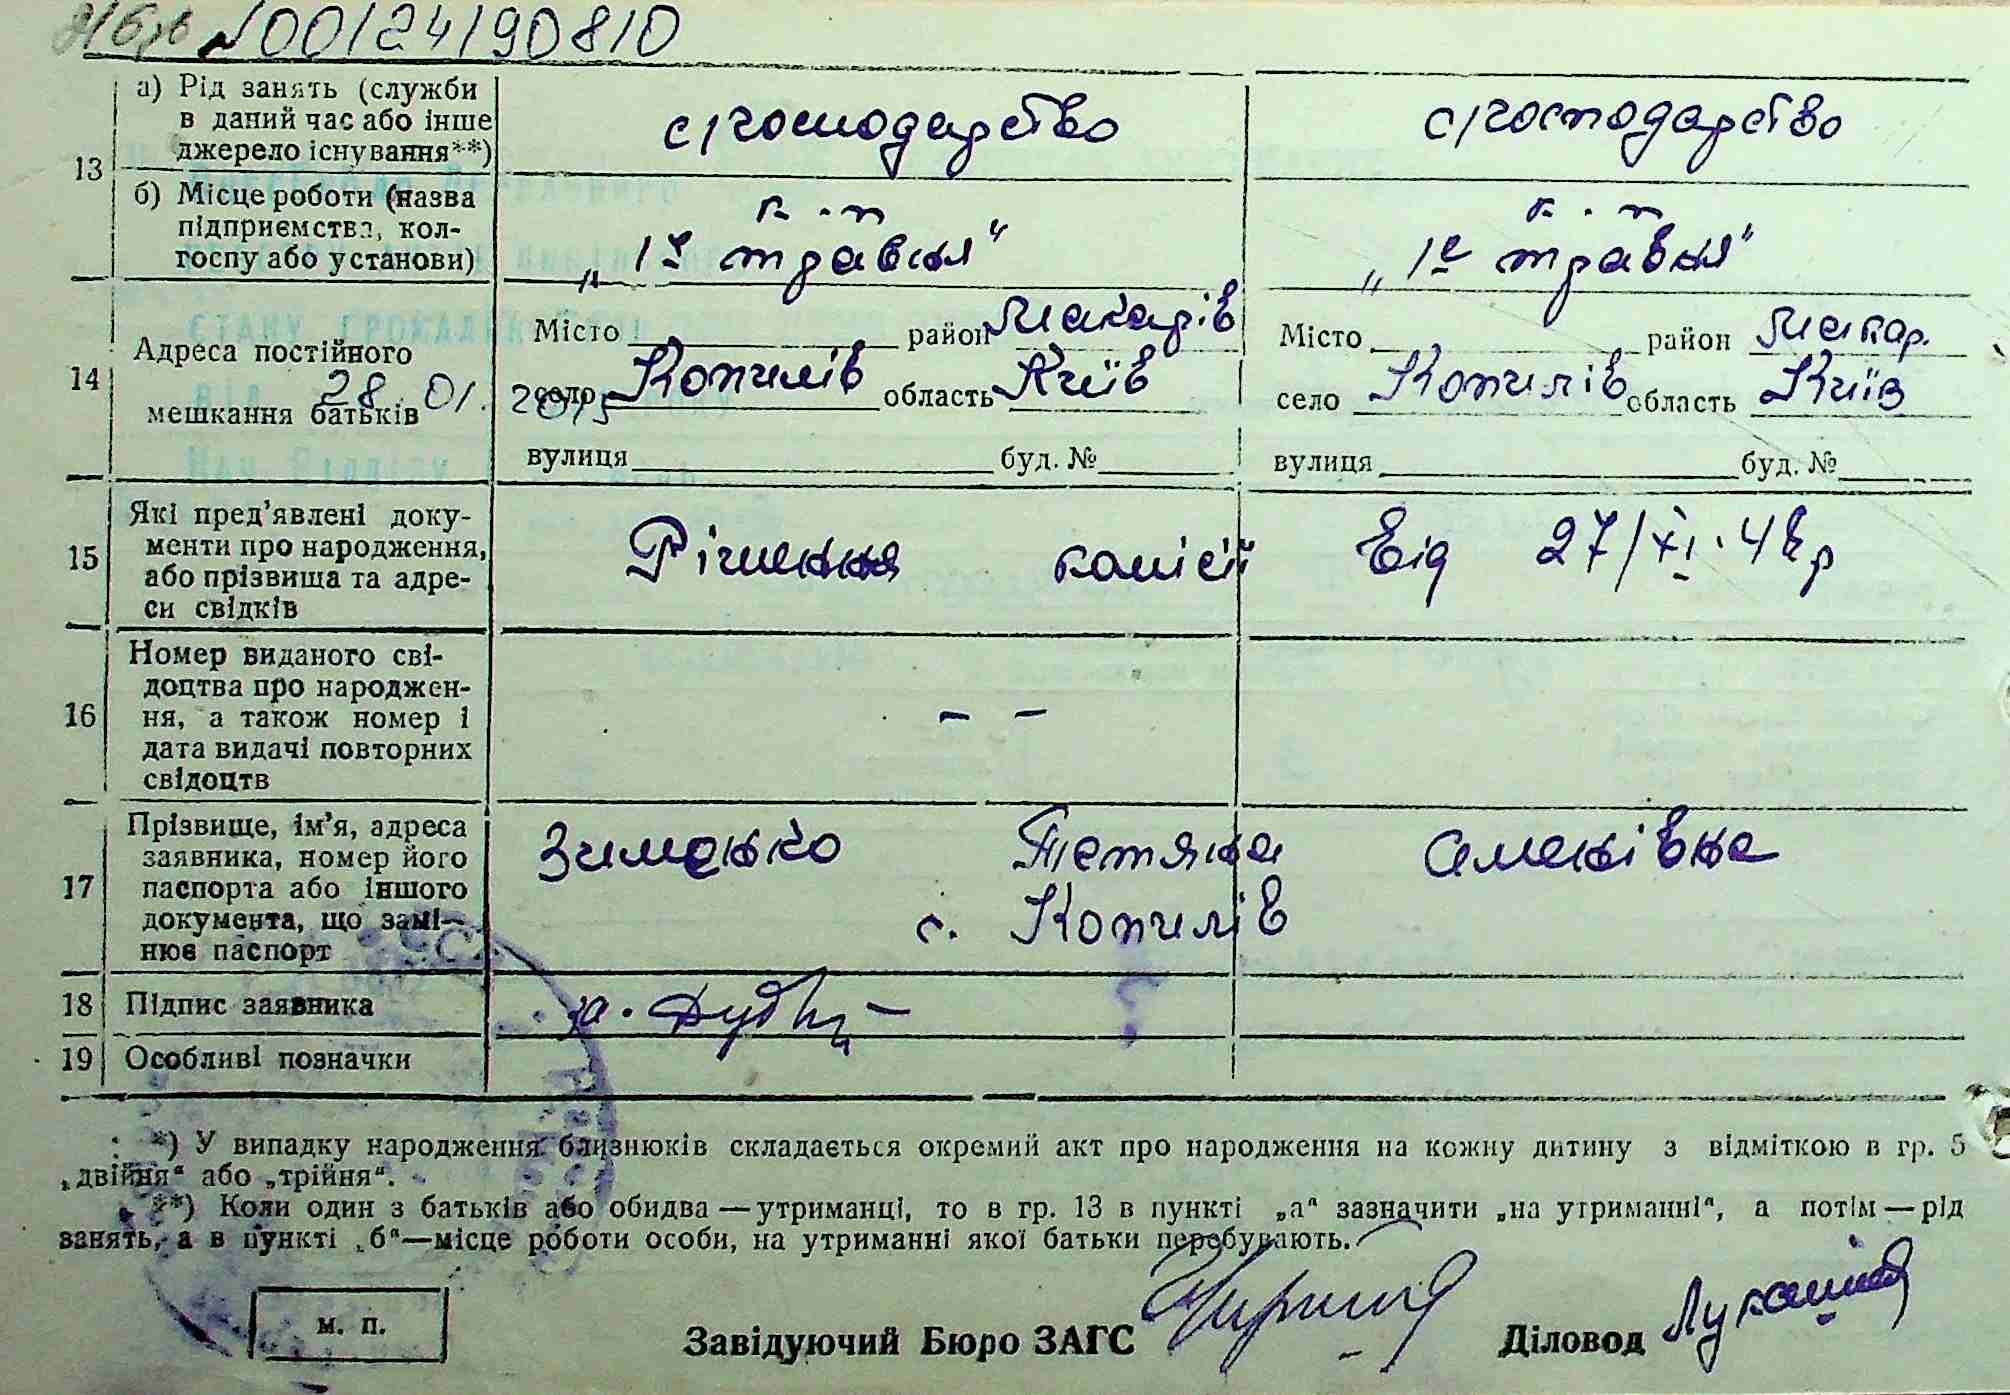 № 00124190810
13
а) Рід занять (служби
в даний час або інше
джерело існування**)
с/господарство
с/господарство
б) Місце роботи (назва
підприємства, кол-
госпу або установи)
к.-п
„1е травня"
к.-п
„1е травня"
14
Адреса постійного
мешкання батьків
28.01.2015
Місто район Макарів
село Копилів область Київ
вулиця буд. №
Місто район Макар.
село Копилів область Київ
вулиця буд. №
15
Які пред'явлені доку-
менти про народження,
або прізвища та адре-
си свідків
Рішення комісії Від 27/XI.
16
Номер виданого сві-
доцтва про народжен-
ня, а також номер і
дата видачі повторних
свідоцтв
– –
17
Прізвище, ім'я, адреса
заявника, номер його
паспорта або іншого
документа, що замі-
нює паспорт
Зименко Тетяна Семенівна
с. Копилів
18
Підпис заявника
19
Особливі позначки
*) У випадку народження близнюків складається окремий акт про народження на кожну дитину з відміткою в гр. 5
„двійня" або „трійня".
**) Коли один з батьків або обидва — утриманці, то в гр. 13 в пункті „а" зазначити „на утриманні", а потім — рід
занять, а в пункті „б"—місце роботи особи, на утриманні якої батьки перебувають.
м. п.
Завідуючий Бюро ЗАГС
Діловод